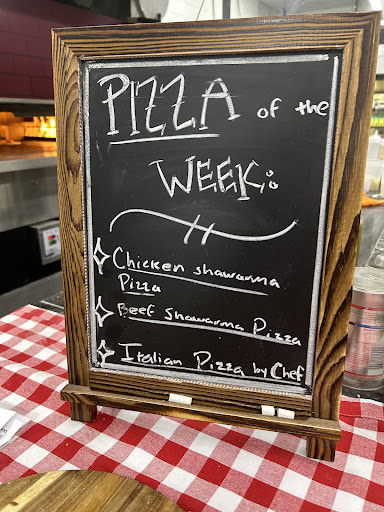 PIZZA of the
WEEK:
Chicken shawarma
Pizza
Beef Shawarma Pizza
Italian Pizza by Chef